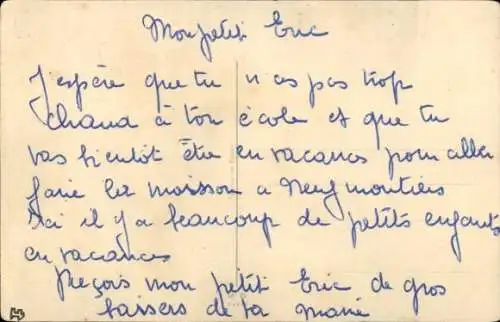 Mon petit Eric
J'espère que tu n'as pas trop
chaud à ton école et que tu
vas bientôt être en vacances pour aller
faire la moisson a Neufmoutiers
Ici il y a beaucoup de petits enfants
en vacances
Reçois mon petit Eric de gros
baisers de ta